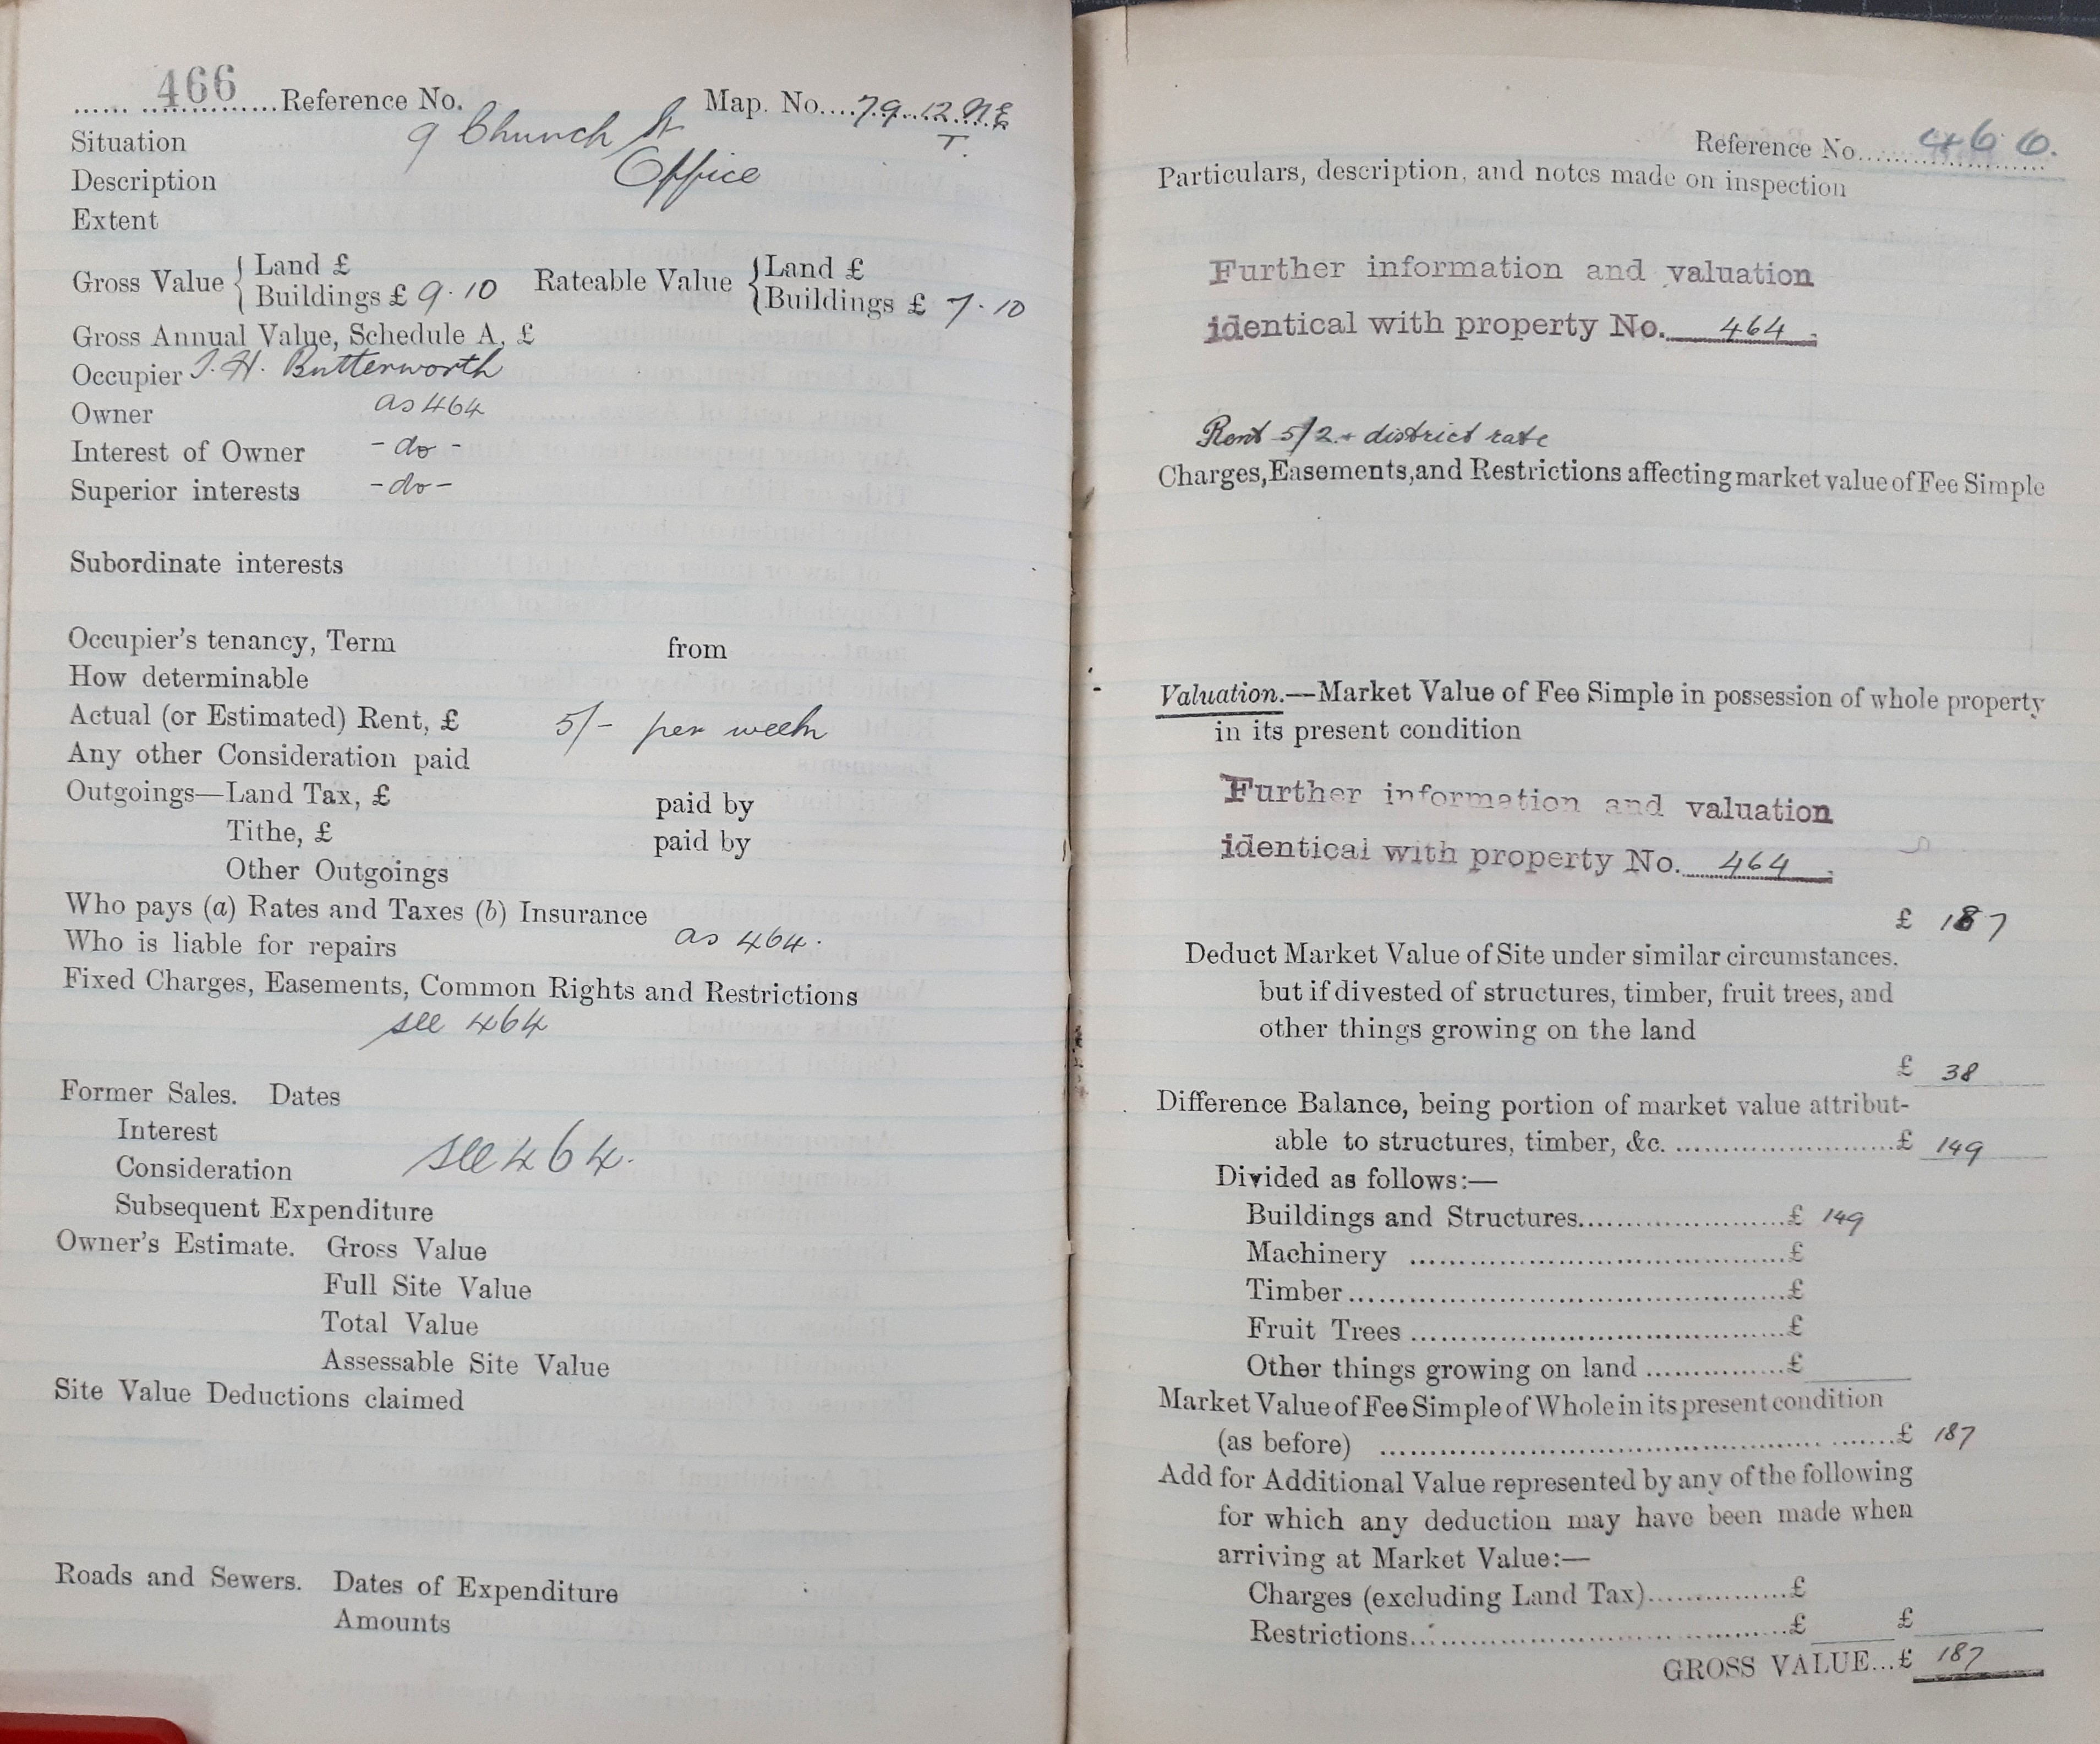 466 Reference No. Map. No. 79.12.NE
T.
Situation 9 Church St
Description Office
Extent
Gross Value { Land £
Buildings £ 9.10 Rateable Value { Land £
Buildings £ 7.10
Gross Annual Value, Schedule A, £
Occupier J. H. Butterworth
Owner as 464
Interest of Owner - do -
Superior interests - do -
Subordinate interests
Occupier's tenancy, Term from
How determinable
Actual (or Estimated) Rent, £ 5/- per week
Any other Consideration paid
Outgoings—Land Tax, £ paid by
Tithe, £ paid by
Other Outgoings
Who pays (a) Rates and Taxes (b) Insurance
Who is liable for repairs as 464.
Fixed Charges, Easements, Common Rights and Restrictions
see 464
Former Sales. Dates
Interest
Consideration see 464.
Subsequent Expenditure
Owner's Estimate. Gross Value
Full Site Value
Total Value
Assessable Site Value
Site Value Deductions claimed
Roads and Sewers. Dates of Expenditure
Amounts
Reference No. 466.
Particulars, description, and notes made on inspection
Further information and valuation
identical with property No. 464.
Rent 5/2 + district rate
Charges, Easements, and Restrictions affecting market value of Fee Simple
Valuation.—Market Value of Fee Simple in possession of whole property
in its present condition
Further information and valuation
identical with property No. 464.
£ 187
Deduct Market Value of Site under similar circumstances,
but if divested of structures, timber, fruit trees, and
other things growing on the land
£ 38
Difference Balance, being portion of market value attribut-
able to structures, timber, &c. £ 149
Divided as follows:—
Buildings and Structures £ 149
Machinery £
Timber £
Fruit Trees £
Other things growing on land £
Market Value of Fee Simple of Whole in its present condition
(as before) £ 187
Add for Additional Value represented by any of the following
for which any deduction may have been made when
arriving at Market Value:—
Charges (excluding Land Tax) £
Restrictions £ £
GROSS VALUE...£ 187